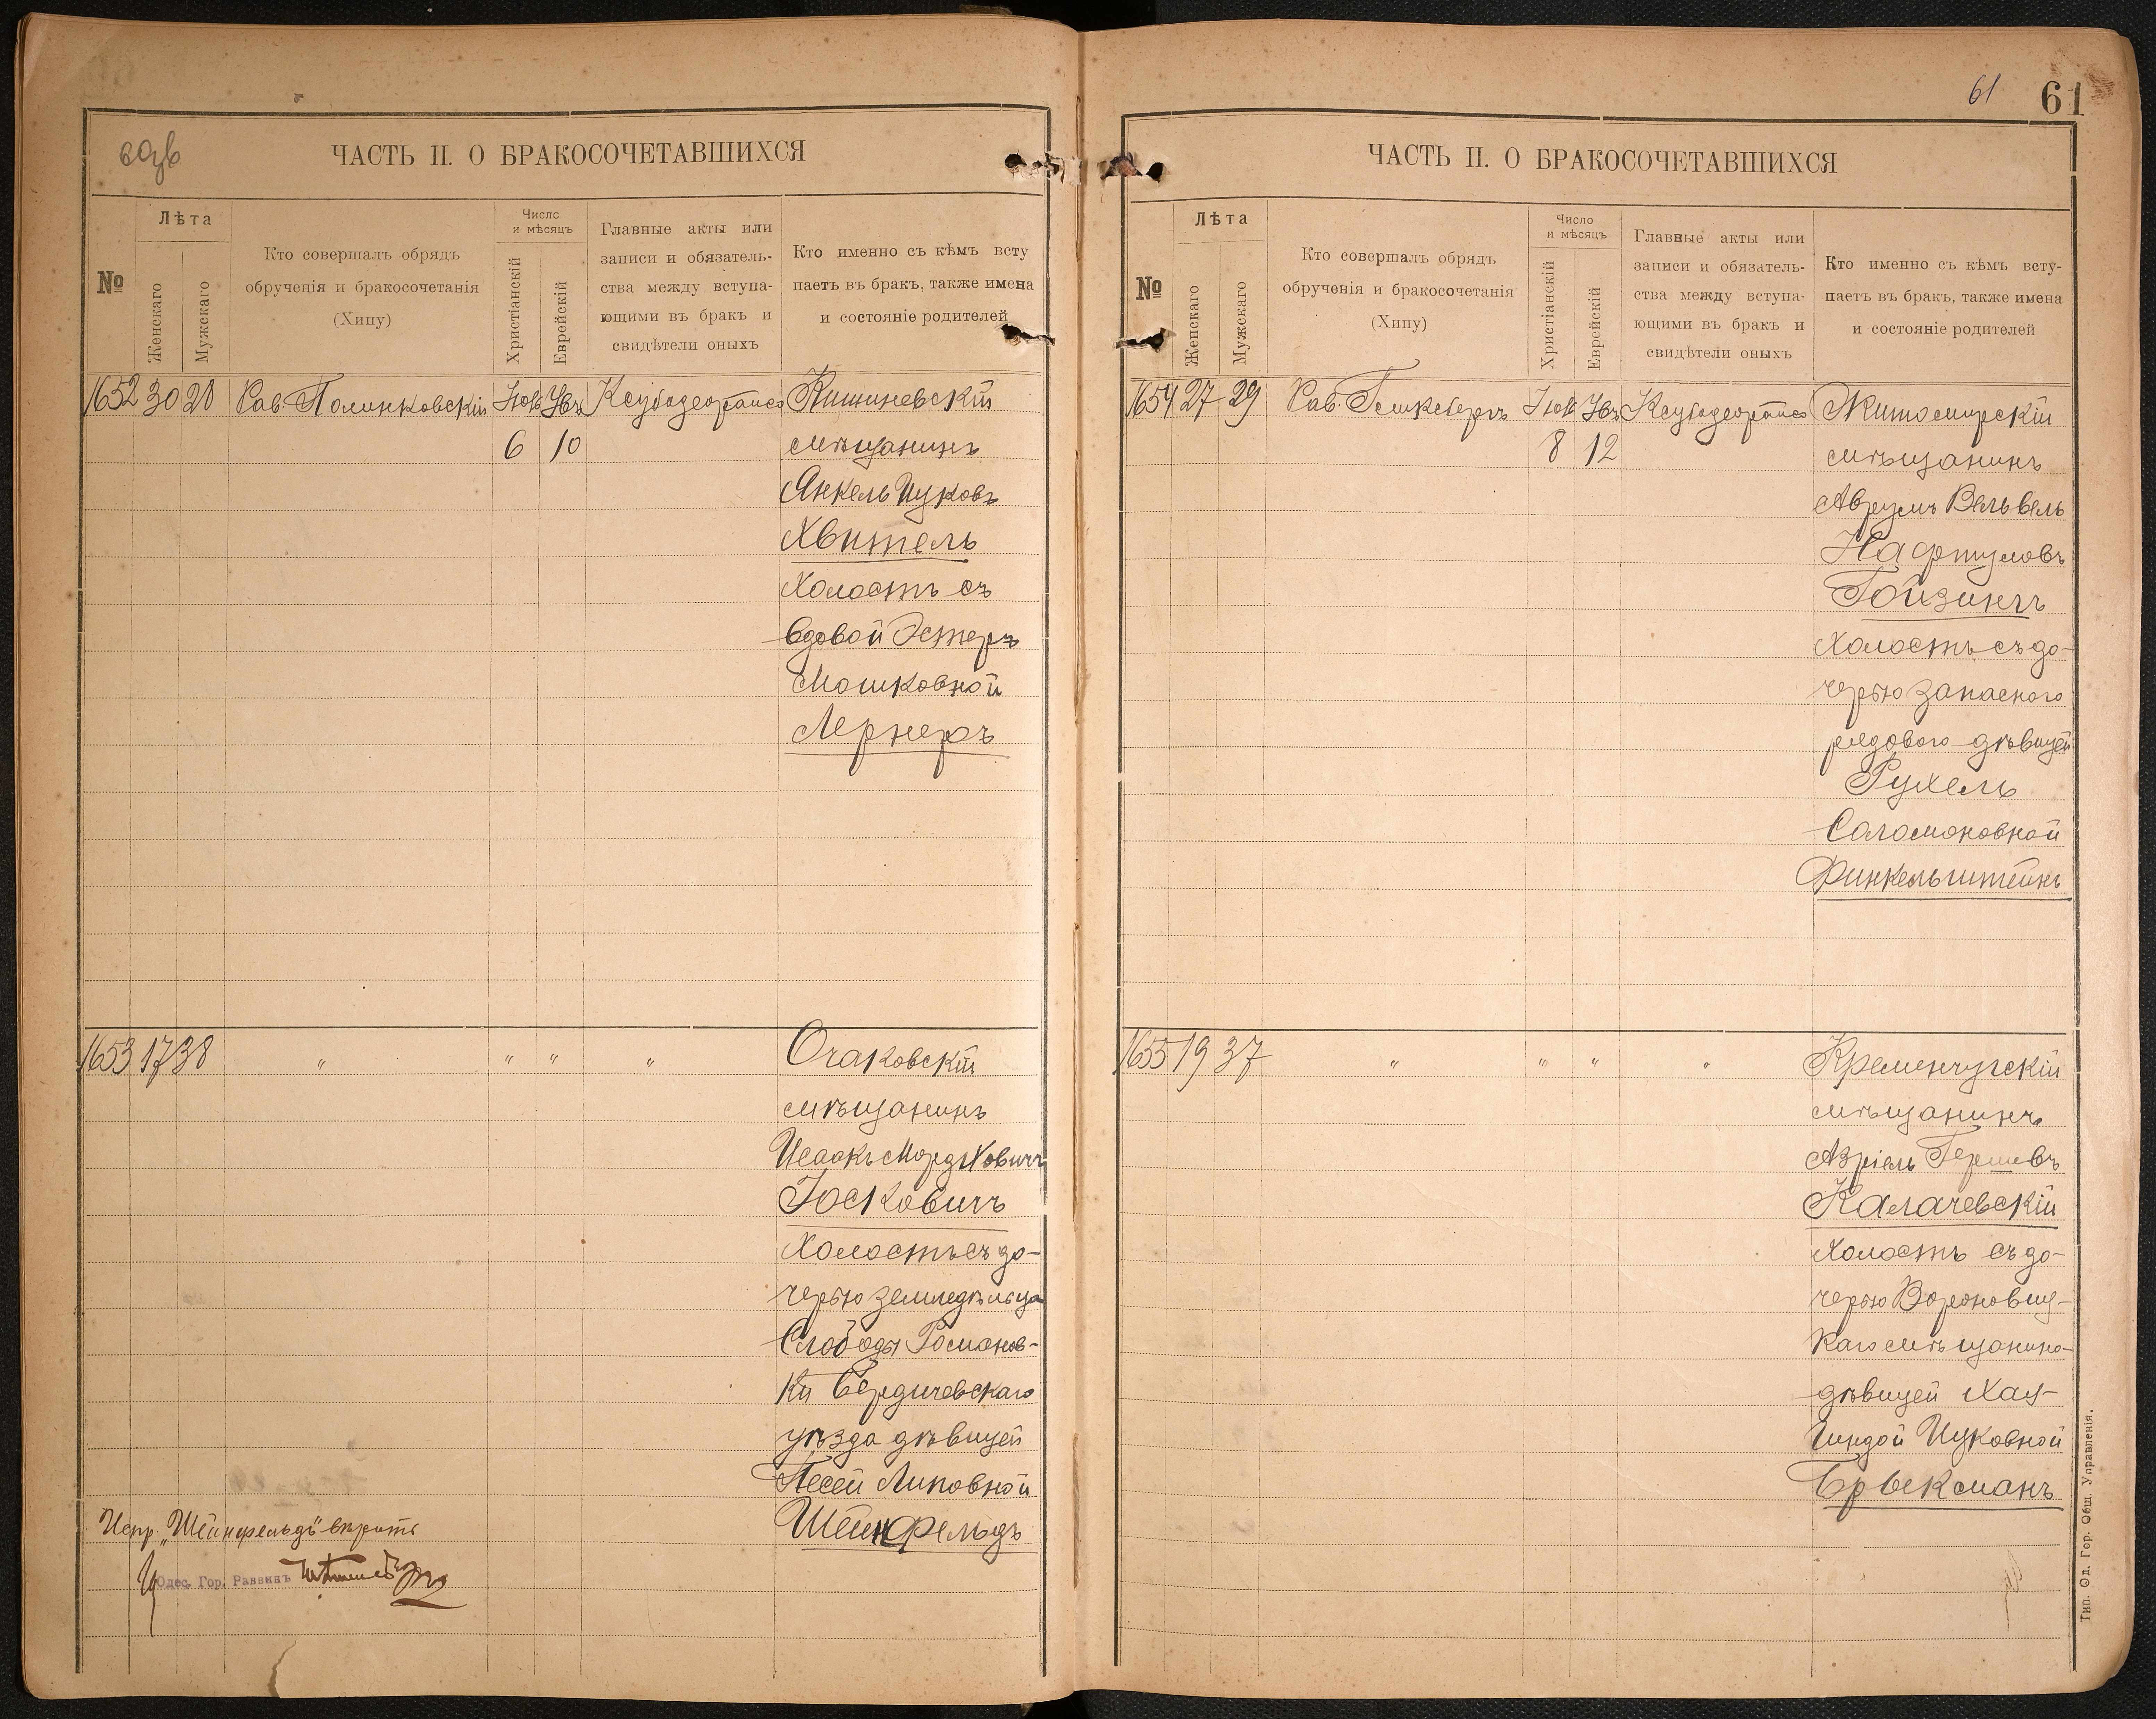 61
61
60 об
ЧАСТЬ II. О БРАКОСОЧЕТАВШИХСЯ
№
Лѣта
Женскаго
Мужскаго
Кто совершалъ обрядъ
обрученія и бракосочетанія
(Хипу)
Число
и мѣсяцъ
Христіанскій
Еврейскій
Главные акты или
записи и обязатель-
ства между вступа-
ющими въ бракъ и
свидѣтели оныхъ
Кто именно съ кѣмъ всту
паетъ въ бракъ, также имена
и состояніе родителей
1652 30 28 Рав. Полинковскій
6 10
Кишиневскій
мѣщанинъ
Янкель Ицковъ
Хвитель
холостъ съ
вдовой Эстеръ
Мошковной
Лернеръ
1653 17 38 " " " "
Очаковскій
мѣщанинъ
Исаакъ Мордковичъ
Іосковичъ
холостъ съ до-
черью земледѣльца
Слободы Романов-
ки Бердичевскаго
уѣзда дѣвицей
Песей Липовной
Шейнфельдъ
Испр. „Шейнфельдъ" вѣрить
Одес. Гор. Раввинъ
ЧАСТЬ II. О БРАКОСОЧЕТАВШИХСЯ
№
Лѣта
Женскаго
Мужскаго
Кто совершалъ обрядъ
обрученія и бракосочетанія
(Хипу)
Число
и мѣсяцъ
Христіанскій
Еврейскій
Главные акты или
записи и обязатель-
ства между вступа-
ющими въ бракъ и
свидѣтели оныхъ
Кто именно съ кѣмъ всту-
паетъ въ бракъ, также имена
и состояніе родителей
1654 27 29 Рав.
8 12
Житомирскій
мѣщанинъ
Аврумъ Вельвель
Нафтуловъ
Гойзинъ
холостъ съ до-
черью запасного
рядового дѣвицей
Рухель
Соломоновной
Финкельштейнъ
1655 19 37 " " " "
Кременчугскій
мѣщанинъ
Азріель Гершевъ
Калачевскій
холостъ съ до-
черью Вороновиц-
каго мѣщанина
дѣвицей Хая-
Гиндой Ицковной
Брыкманъ
Тип. Од. Гор. Общ. Управленія.